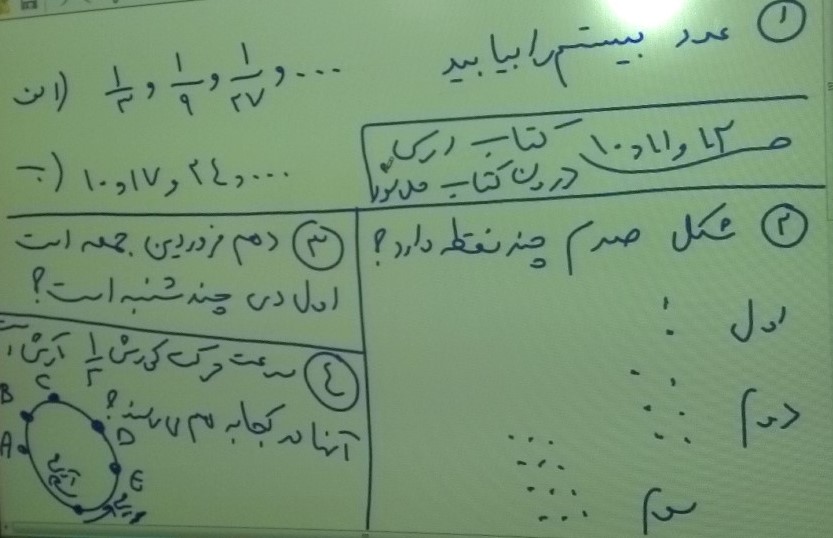 ① عدد بیستم را بیابید
الف) ۱/۳ و ۱/۹ و ۱/۲۷ و ...
ب) ۱۰ و ۱۷ و ۲۴ و ...
صـ ۱۲ و ۱۱ و ۱۰ کتاب درسی
در درون کتاب حل شود
② شکل صدم چند نقطه دارد؟
اول
دوم
سوم
③ دهم فروردین جمعه است
اول دی چند شنبه است؟
④ سرعت حرکت کورش ۱/۲ آرش است
آنها در کجا به هم می‌رسند؟
B C
A D
E
آرش کورش